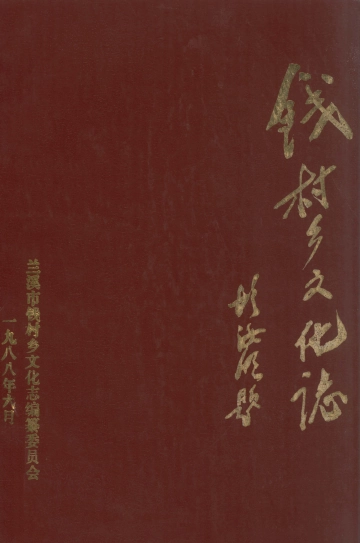 钱村乡文化誌
题
兰溪市钱村乡文化志编纂委员会
一九八八年